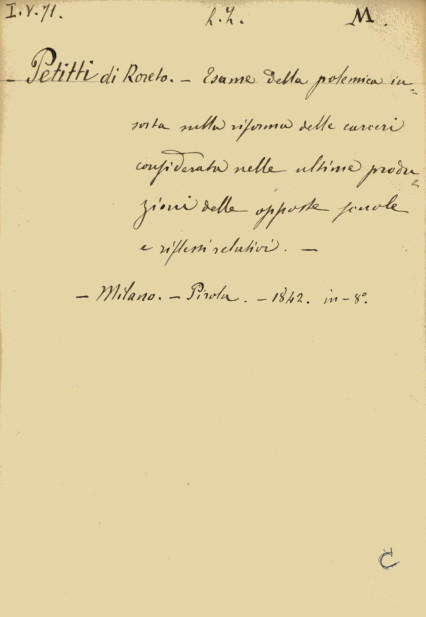 I.V.71. h.h. M.
– Petitti di Roreto. – Esame della polemica in=
sorta sulla riforma delle carceri
considerata nelle ultime produ=
zioni delle opposte scuole
e riflessi relativi. –
– Milano. – Pirola. – 1842. in-8º.
C